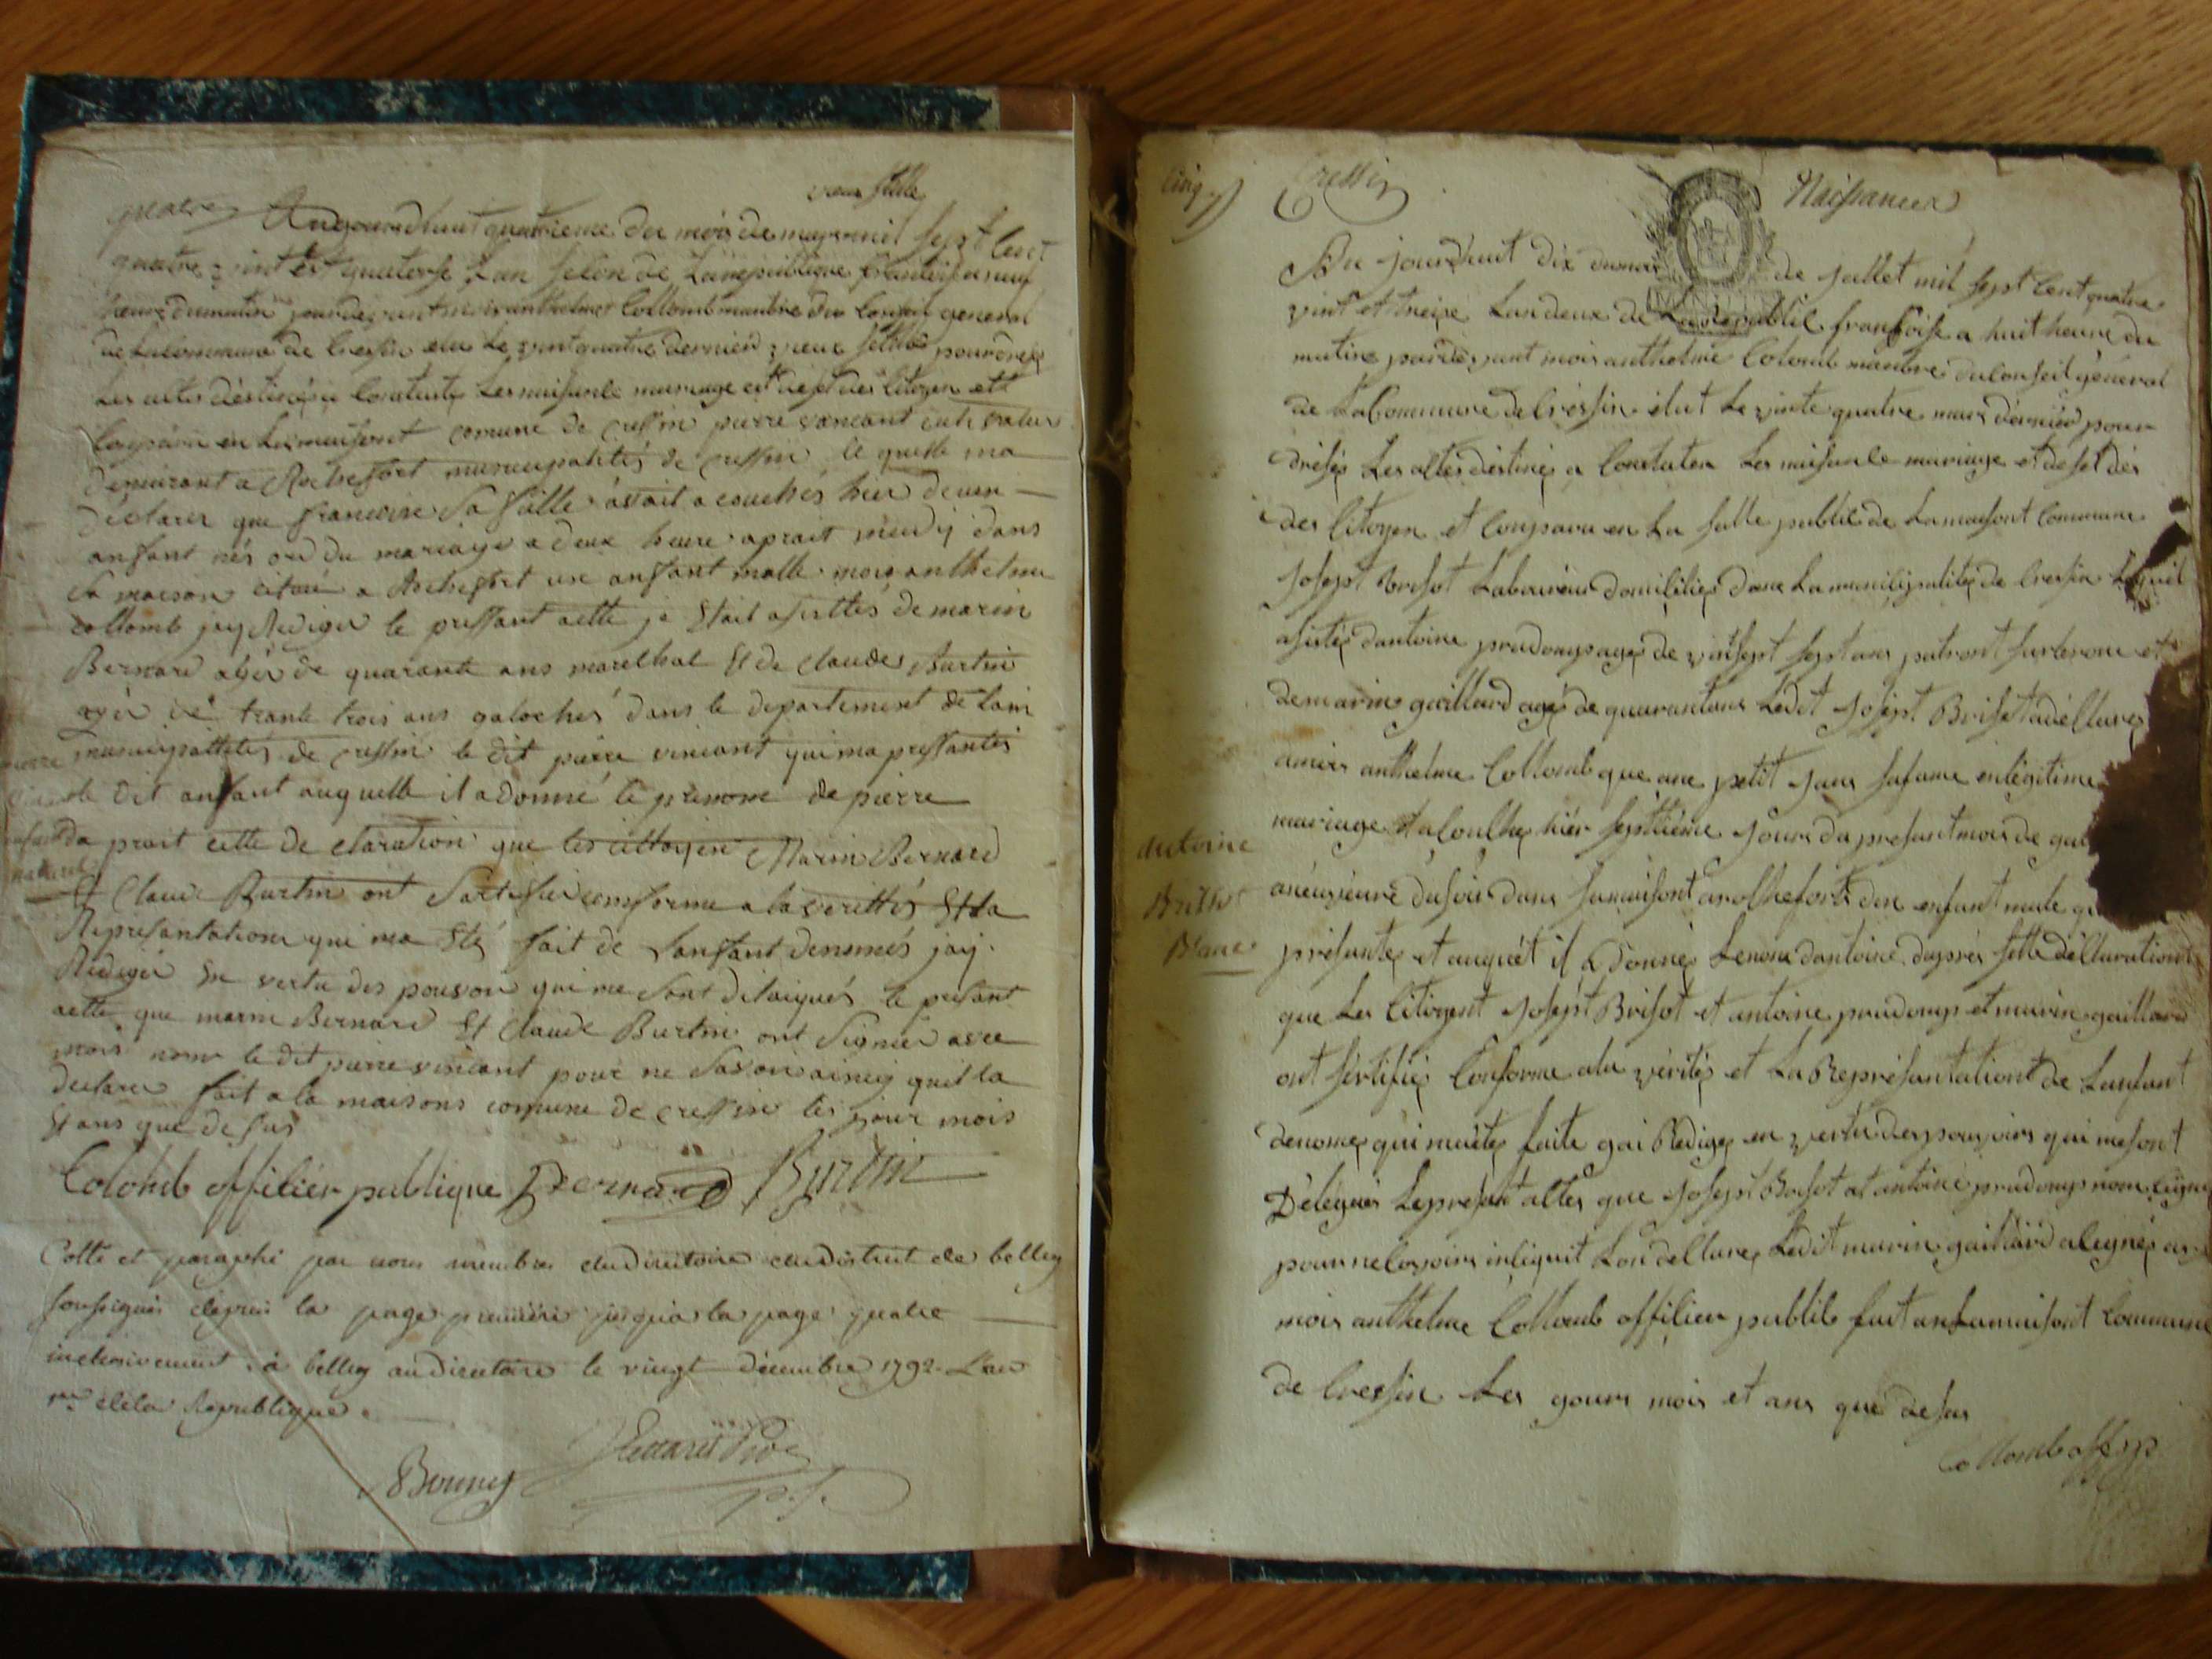 vieux stille
quatre Aujourdhuit quatrieme du mois de may mil sept cent
quatre vint et quatorse l'an selon de la republique francoise a neuf
heure du matin pardevant moi anthelme Collomb manbre du Conseil general
de la Commune de Cressin eleu le vint quatre dernier vieux stille pour dresse
les actes destines a Constater les naisance mariage et des Citoyen est
Comparu en la maisont comune de cressin pierre vincant cultivateur
demeurant a Rochefort municipalités de cressin le quelle ma
déclarer que francoise sa fille avait acouchés hier d'euen
anfant nés or du mariage a deux heure aprait meidy dans
sa maison cituée a Rochefort un anfant malle moy anthelme
collomb jay Rediger le pressant actte je stait assisttés de marin
Bernard agér de quarante ans marechal Et de Claude Burtin
agér de trante trois ans galochér dans le departement de lain
municipalittés de cressin le dit pierre vincant qui ma pressantés
le dit anfant auquelle il a donné le prenom de pierre
da prait cette de claration que les cittoyen Marin Bernard
Et Claude Burtin ont Sartifié conforme a la verittés Et la
Represantation qui ma Eté fait de l'anfant denomés jay
Redigér En vertu des pouvoir qui me sont délaigués le presant
actte que marin Bernard Et Claude Burtin ont Signér avec
mois nom le dit pierre vincant pour ne savoir aincy quil la
declarer fait a la maisons comune de cressin les jour mois
Et ans que desus
Colomb offilier publique Bernard Burtin
Cotté et paraphé par nous membre du directoire du district de belley
soussignés depuis la page première jusqu'a la page quatre
inclusivement. à belley au directoire le vingt décembre 1792. L'an
1er de la Republique.
Cinq Cressin Naissances
Au jourd'huit dix du mois de jullet mil sept Cent quatre
vint et treize Lan deux de La Republic francoise a huit heure du
matin pardevant mois anthelme Colomb manbre du Conseil général
de La Commune de Cressin élut Le vinte quatre mars dérniér pour
drésés Les actes déstinés a Constater Les naisance mariage et deset dés
des Citoyen et Comparu en La salle public de La maisont Commune
Josept Brisot Laboureur domiliés dans La municipalités de Cressin Lequel
asistés dantoine prudomp agés de vintsept sept ans patront sur lerone et
de marin gaillard agés de quarantans Ledit Josept Brisot a déClares
a mois anthelme Collomb que ane petit jans sa fame en légitime
mariage et acouChes hiér septiéme Jours du present mois de
a neuzieure du soir dans sa maisont a rochefort dun enfant male
présantés et auquét il a donnés Le nom dantoine d'aprés sette déClarationt
que Les Citoyent Josept Brisot et antoine prudomp et marin gaillard
ont sértifiés Conforme a la vérités et La Représantationt de Lanfant
denomes qui maétés faite gai Rediges en vertu des pouvoirs qui me sont
Délégués Le présent actes que Josept Brisot et antoine prudomp nom signe
pour ne Lavoirs insiquit Lon déClares Ledit marin gaillard a signés avec
mois anthelme Collomb offilier public fait en La maisont Commune
de Cressin Les gours mois et ans que desus
Collomb off p